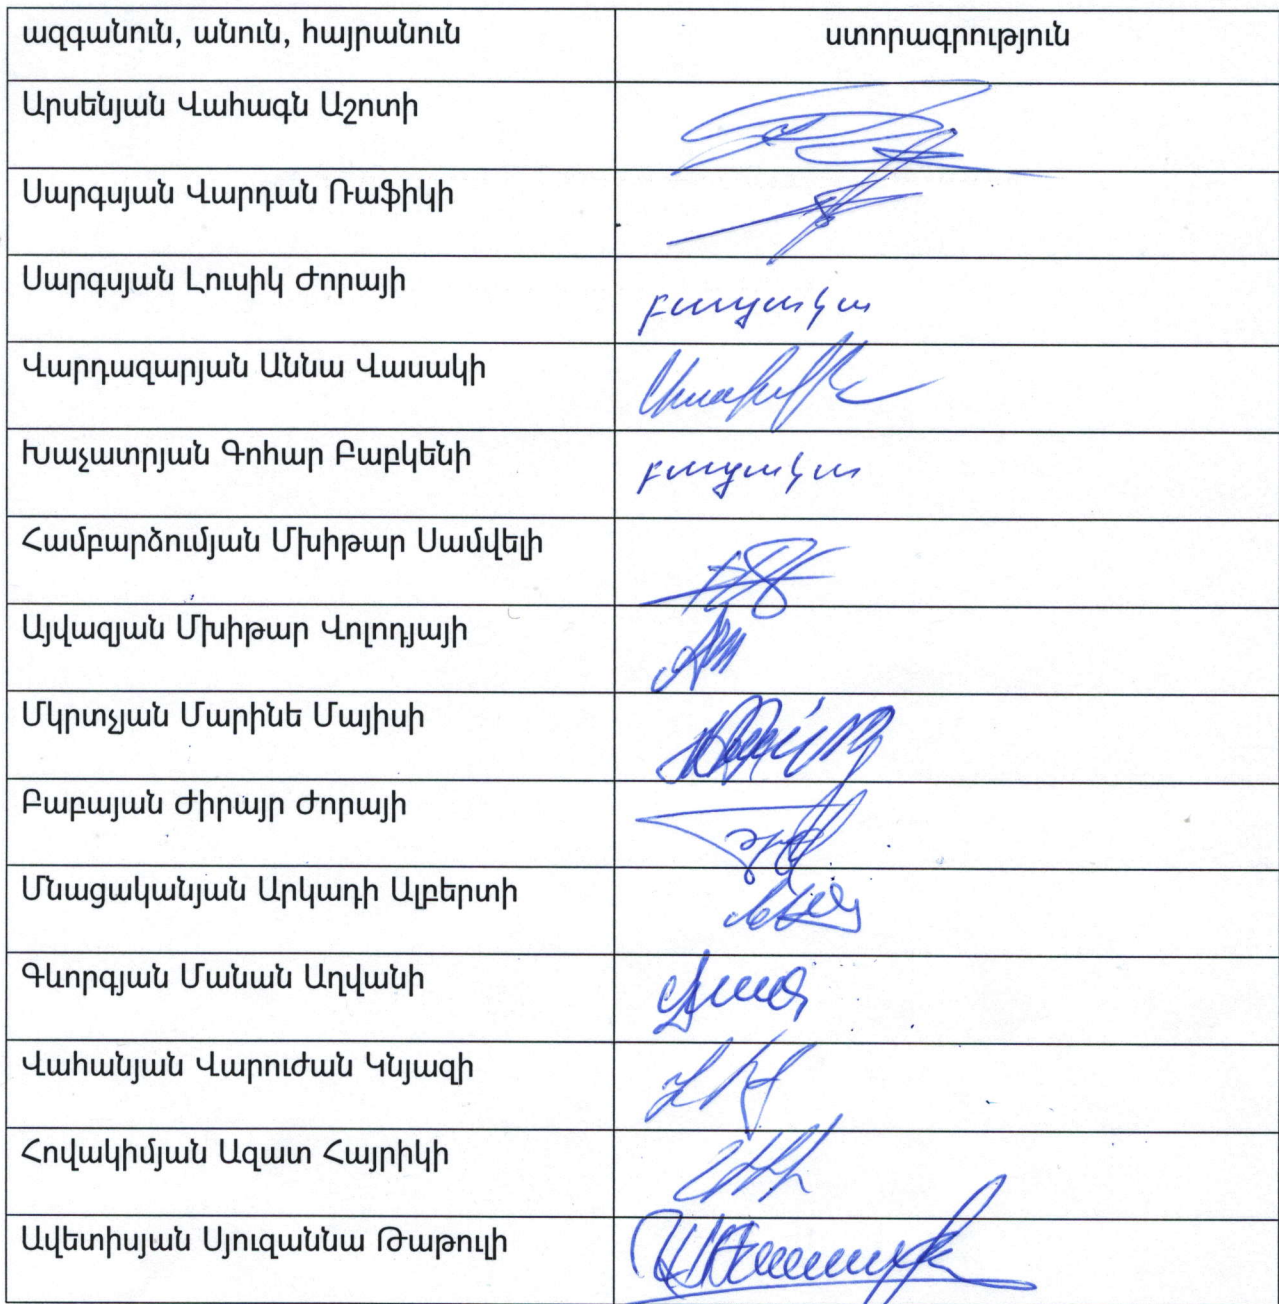 ազգանուն, անուն, հայրանուն ստորագրություն
Արսենյան Վահագն Աշոտի
Սարգսյան Վարդան Ռաֆիկի
Սարգսյան Լուսիկ Ժորայի բացակա
Վարդազարյան Աննա Վասակի
Խաչատրյան Գոհար Բաբկենի բացակա
Համբարձումյան Մխիթար Սամվելի
Այվազյան Մխիթար Վոլոդյայի
Մկրտչյան Մարինե Մայիսի
Բաբայան Ժիրայր Ժորայի
Մնացականյան Արկադի Ալբերտի
Գևորգյան Մանան Աղվանի
Վահանյան Վարուժան Կնյազի
Հովակիմյան Ազատ Հայրիկի
Ավետիսյան Սյուզաննա Թաթուլի